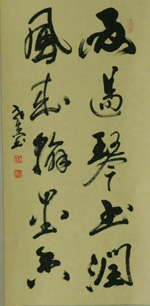 雨過琴书潤
風來翰墨香